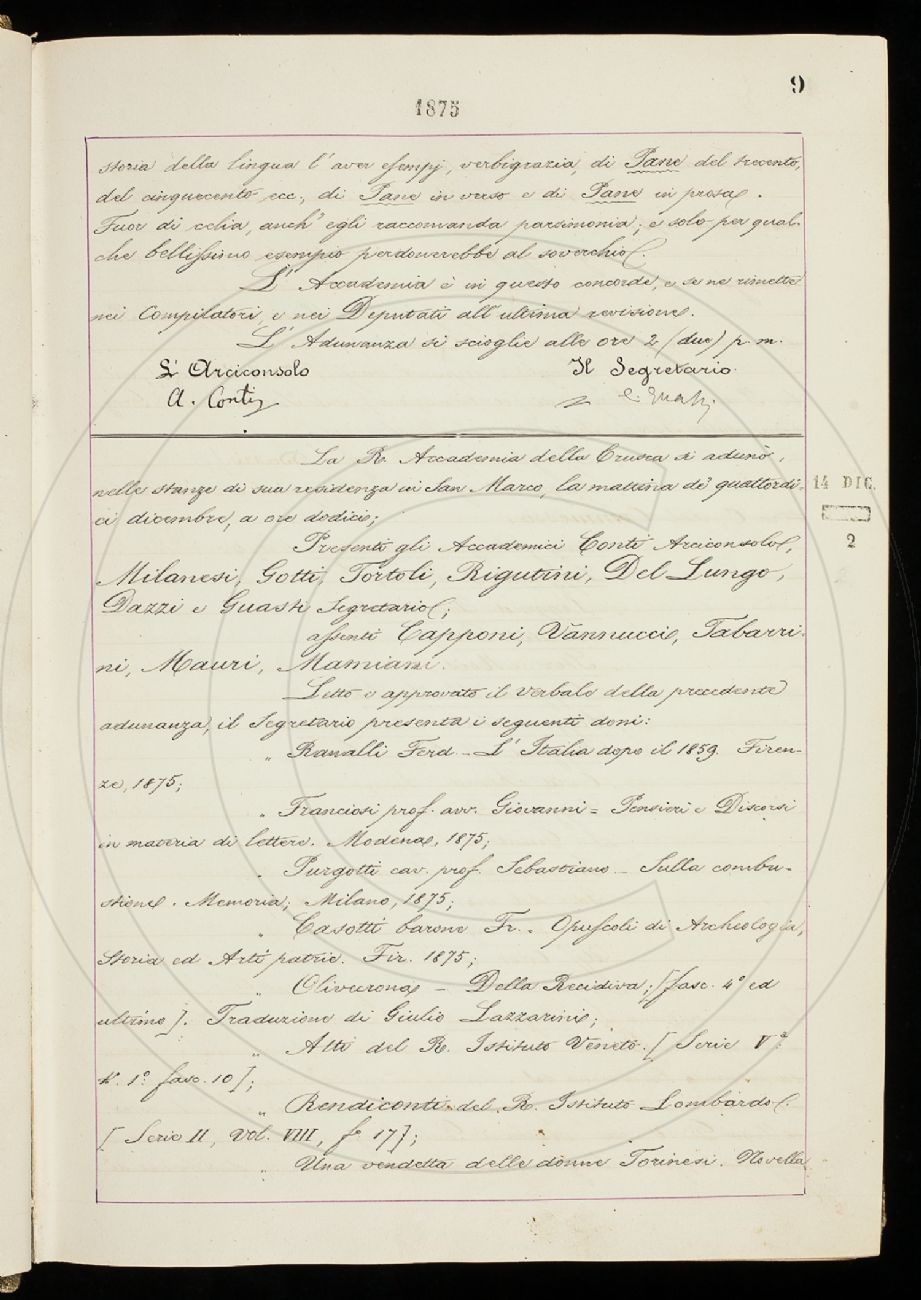 9
1875
storia della lingua l'aver esempj, verbigrazia, di Pane del trecento,
del cinquecento ecc., di Pane in verso e di Pane in prosa.
Fuor di celia, anch'egli raccomanda parsimonia; e solo per qual-
che bellissimo esempio perdonerebbe al soverchio.
L'Accademia è in questo concorde, e se ne rimette
nei Compilatori, e nei Deputati all'ultima revisione.
L'Adunanza si scioglie alle ore 2 (due) p. m.
L'Arciconsolo Il Segretario
A. Conti C. Guasti
La R. Accademia della Crusca si adunò,
nelle stanze di sua residenza in San Marco, la mattina de' quattordi-
ci dicembre, a ore dodici;
14 DIC.
2
Presenti gli Accademici Conti Arciconsolo,
Milanesi, Gotti, Tortoli, Rigutini, Del Lungo,
Dazzi e Guasti Segretario;
assenti Capponi, Vannucci, Tabarri-
ni, Mauri, Mamiani.
Letto e approvato il verbale della precedente
adunanza, il Segretario presenta i seguenti doni:
" Ranalli Ferd. - L'Italia dopo il 1859. Firen-
ze, 1875;
" Franciosi prof. avv. Giovanni = Pensieri e Discorsi
in materia di lettere. Modena, 1875;
" Purgotti cav. prof. Sebastiano - Sulla combu-
stione. Memoria; Milano, 1875;
" Casotti barone Fr. - Opuscoli di Archeologia,
Storia ed Arti patrie. Fir. 1875;
" Olivecrona - Della Recidiva; [fasc. 4° ed
ultimo]. Traduzione di Giulio Lazzarini;
" Atti del R. Istituto Veneto. [Serie Vª
t. 1° fasc. 10];
" Rendiconti del R. Istituto Lombardo.
[Serie II, Vol. VIII, f. 17];
" Una vendetta delle donne Torinesi. Novella